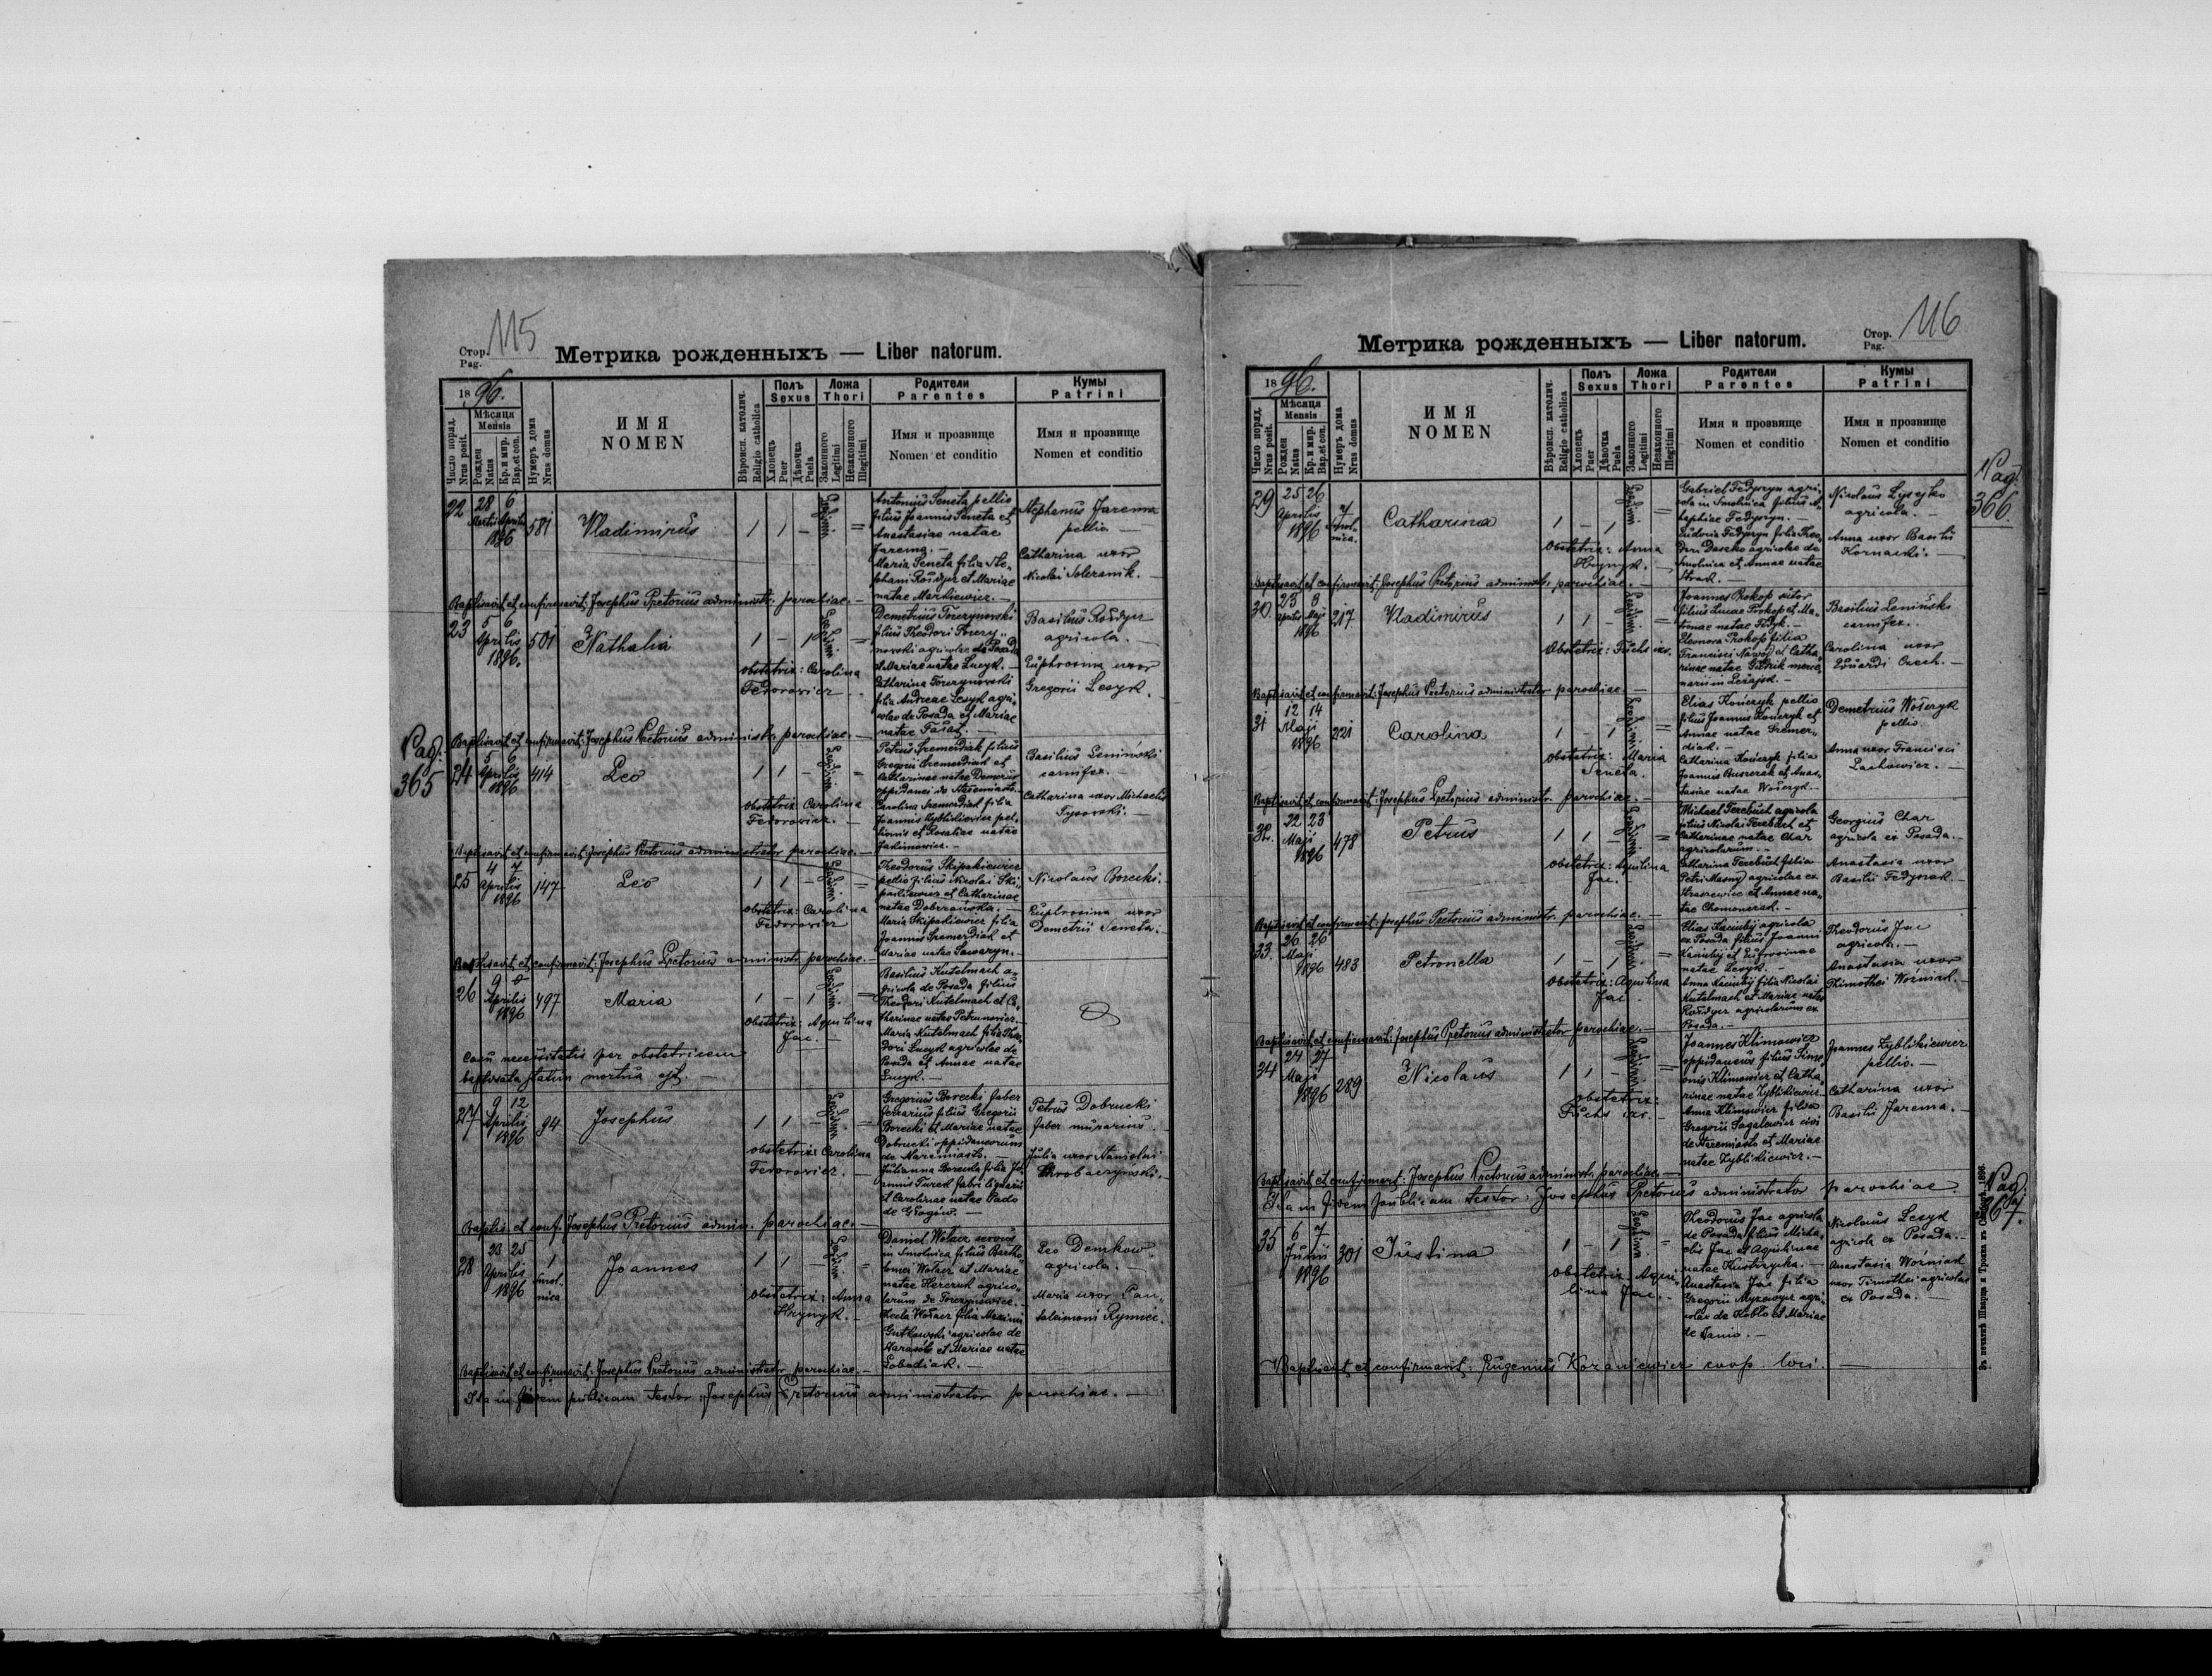 115
Стор.
Pag.
Метрика рожденныхъ — Liber natorum.
1896.
Число поряд. Nrus posit.
Мѣсяця Mensis
Рожден Natus
Кр. и мир. Bap. et con.
Нумеръ дома Nrus domus
ИМЯ
NOMEN
Вѣроисп. католич. Religio catholica
Полъ Sexus
Хлопецъ Puer
Дѣвочка Puela
Ложа Thori
Законного Legitimi
Незаконного Illegitimi
Родители
Parentes
Имя и прозвище
Nomen et conditio
Кумы
Patrini
Имя и прозвище
Nomen et conditio
22 28 6 Martii Aprilis 1896 581 Vladimirus 1 1 – Legitimi =
Antonius Seneta pellio
filius Joannis Seneta et
Anastasiae natae
Jarema. –
Maria Seneta filia Ste-
phani et Mariae
natae Markiewicz. –
Stephanus Jarema
pellio –
Catharina uxor
Nicolai
Baptisavit et confirmavit: Josephus Pretorius administr. parochiae. –
23 5 6 Aprilis 1896. 501 Nathalia 1 – 1 Legitimi =
obstetrix: Carolina
Fedorowicz –
Demetrius Torczynowski
filius Theodori Torczy-
nowski agricolae de Posada
et Mariae natae Lucyk. –
Catharina Torczynowski
filia Andreae Lesyk agri-
colae de Posada et Mariae
natae
Basilius
agricola. –
Euphrosina uxor
Gregorii Lesyk. –
Baptisavit et confirmavit: Josephus Pretorius administr. parochiae. –
Pag.
365
24 5 6 Aprilis 1896 414 Leo 1 1 – Legitimi =
obstetrix: Carolina
Fedorowicz. –
Petrus Szemerdiak filius
Gregorii Szemerdiak et
Catharinae natae
oppidanei de
Carolina Szemerdiak filia
Joannis Zyblikiewicz pel-
lionis et Rosaliae natae
Basilius Leninski
carnifex. –
Catharina uxor Michaelis
Tysowski. –
Baptisavit et confirmavit: Josephus Pretorius administrator parochiae. –
25 4 7 Aprilis 1896 147 Leo 1 1 – Legitimi =
obstetrix: Carolina
Fedorowicz
Theodorus Skipakiewicz
pellio filius Nicolai Ski-
pakiewicz et Catharinae
natae Dobrzańska. –
Maria Skipakiewicz filia
Joannis Szemerdiak et
Mariae natae Sawaryn. –
Nicolaus Borecki. –
Euphrosina uxor
Demetrii Seneta. –
Baptisavit et confirmavit: Josephus Pretorius administr. parochiae. –
26 9 Aprilis 1896 497 Maria 1 – 1 Legitimi =
obstetrix: Aquilina
Jac. –
Casu necessitatis per obstetricem
baptisata statim mortua est. –
Basilius Kutelmach a-
gricola de Posada filius
Theodori Kutelmach et Ca-
tharinae natae
Maria Kutelmach filia Theo-
dori Lucyk agricolae de
Posada et Annae natae
Lucyk. –
27 9 12 Aprilis 1896 94 Josephus 1 1 – Legitimi =
obstetrix: Carolina
Fedorowicz. –
Gregorius Borecki faber
ferrarius filius Gregorii
Borecki et Mariae natae
Dobrucki oppidaneorum
de
Julianna Borecka filia Jo-
annis Turek fabri lignarii
et Carolinae natae Pado
de Głogów. –
Petrus Dobrucki
faber murarius. –
Julia uxor Stanislai
Baptis. et conf. Josephus Pretorius admin. parochiae. –
28 23 25 Aprilis 1896 1 Smol-
nica Joannes 1 1 – Legitimi =
obstetrix: Anna
Hrynyk. –
Daniel servus
in Smolnica filius Bartho-
lomei et Mariae
natae agrico-
larum de Torczynowice. –
Thecla filia Maximi
agricolae de
et Mariae natae
Lobodiak. –
Leo Demkow
agricola. –
Maria uxor Pan-
taleimoni Rymnicz.
Baptisavit et confirmavit: Josephus Pretorius administrator parochiae. –
Ita in fidem publicam testor Josephus Pretorius administrator parochiae. –
116
Стор.
Pag.
Метрика рожденныхъ — Liber natorum.
1896.
Число поряд. Nrus posit.
Мѣсяця Mensis
Рожден Natus
Кр. и мир. Bap. et con.
Нумеръ дома Nrus domus
ИМЯ
NOMEN
Вѣроисп. католич. Religio catholica
Полъ Sexus
Хлопецъ Puer
Дѣвочка Puela
Ложа Thori
Законного Legitimi
Незаконного Illegitimi
Родители
Parentes
Имя и прозвище
Nomen et conditio
Кумы
Patrini
Имя и прозвище
Nomen et conditio
Pag.
366.
29 25 26 Aprilis 1896 7 Smol-
nica. Catharina 1 – 1 Legitimi =
Obstetrix: Anna
Hrynyk. –
Gabriel Fedyszyn agri-
cola in Smolnica filius
Fedyszyn. –
Eudocia Fedyszyn filia Theo-
dori agricolae de
Smolnica et Annae natae
Nicolaus Lysejko
agricola. –
Anna uxor Basilii
Kornacki. –
Baptisavit et confirmavit: Josephus Pretorius administr. parochiae. –
30 25 8 Aprilis Maji 1896 217 Vladimirus 1 1 – Legitimi =
Obstetrix: Fuchs
Joannes Prokop sutor
filius Lucae Prokop et Ma-
natae Fedyk. –
Eleonora Prokop filia
Francisci et Catha-
rinae natae
in Leżajsk. –
Basilius Leniński
carnifex.
Carolina uxor
Eduardi Czech. –
Baptisavit et confirmavit: Josephus Pretorius administrator parochiae. –
31 12 14 Maji 1896 221 Carolina 1 – 1 Legitimi =
Obstetrix: Maria
Seneta.
Elias Kończyk pellio
filius Joannis Kończyk et
Annae natae Szemer-
diak. –
Catharina Kończyk filia
Joannis et Anas-
tasiae natae
Demetrius
pellio.
Anna uxor Francisci
Lachowicz. –
Baptisavit et confirmavit: Josephus Pretorius administr. parochiae. –
32. 22 23 Maji 1896 478 Petrus 1 1 – Legitimi =
obstetrix: Aquilina
Jac. –
Michael Terebuch agricola
filius Nicolai Terebuch et
Catharinae natae Char
agricolarum. –
Catharina Terebuch filia
Petri agricolae ex
et Annae na-
tae –
Georgius Char
agricola ex Posada. –
Anastasia uxor
Basilii –
Baptisavit et confirmavit: Josephus Pretorius administr. parochiae. –
33. 26 26 Maji 1896 483 Petronella 1 – 1 Legitimi =
obstetrix: Aquilina
Jac.
Elias agricola
ex Posada filius Joannis
et Eufrosinae
natae Lesyk. –
Anna filia Nicolai
Kutelmach et Mariae natae
agricolarum ex
Posada. –
Theodorus Jac
agricola. –
Anastasia uxor
Thimothei Woźniak. –
Baptisavit et confirmavit: Josephus Pretorius administrator parochiae. –
34 24 27 Maji 1896 289 Nicolaus 1 1 – Legitimi =
obstetrix:
Fuchs
Joannes Klimowicz
oppidaneus filius Sime-
onis Klimowicz et Catha-
rinae natae Zyblikiewicz. –
Anna Klimowicz filia
Gregorii civi
de et Mariae
natae Zyblikiewicz. –
Joannes Zyblikiewicz
pellio. –
Catharina uxor
Basilii Jarema. –
Baptisavit et confirmavit: Josephus Pretorius administr. parochiae. –
Ita in fidem publicam testor: Josephus Pretorius administrator parochiae.
Pag.
367.
35 6 7 Junii 1896 301 Justina 1 – 1 Legitimi =
Obstetrix. Aqui-
lina Jac. –
Theodorus Jac agricola
de Posada filius Micha-
elis Jac et Aquilinae
natae –
Anastasia Jac filia
Gregorii agri-
colae de et Mariae
de –
Nicolaus Lesyk
agricola ex Posada. –
Anastasia Woźniak
uxor Timothei agricolae
ex Posada. –
Baptisavit et confirmavit: Eugenius coop. loci. –
Въ печатнѣ Шварца и Трояна въ 1896.